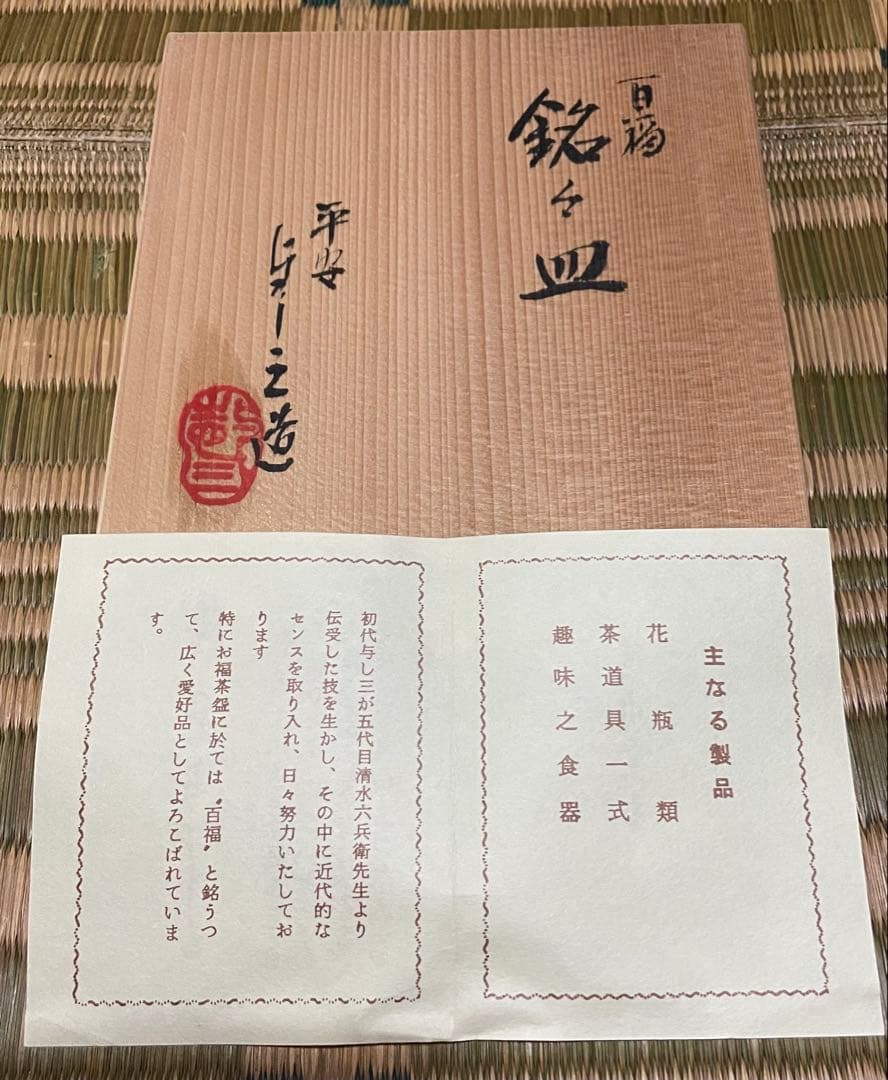 百福
銘々皿
平安
造
主なる製品
花瓶類
茶道具一式
趣味之食器
初代与し三が五代目清水六兵衛先生より
伝受した技を生かし、その中に近代的な
センスを取り入れ、日々努力いたしてお
ります
特にお福茶盌に於ては〝百福〟と銘うつ
て、広く愛好品としてよろこばれていま
す。